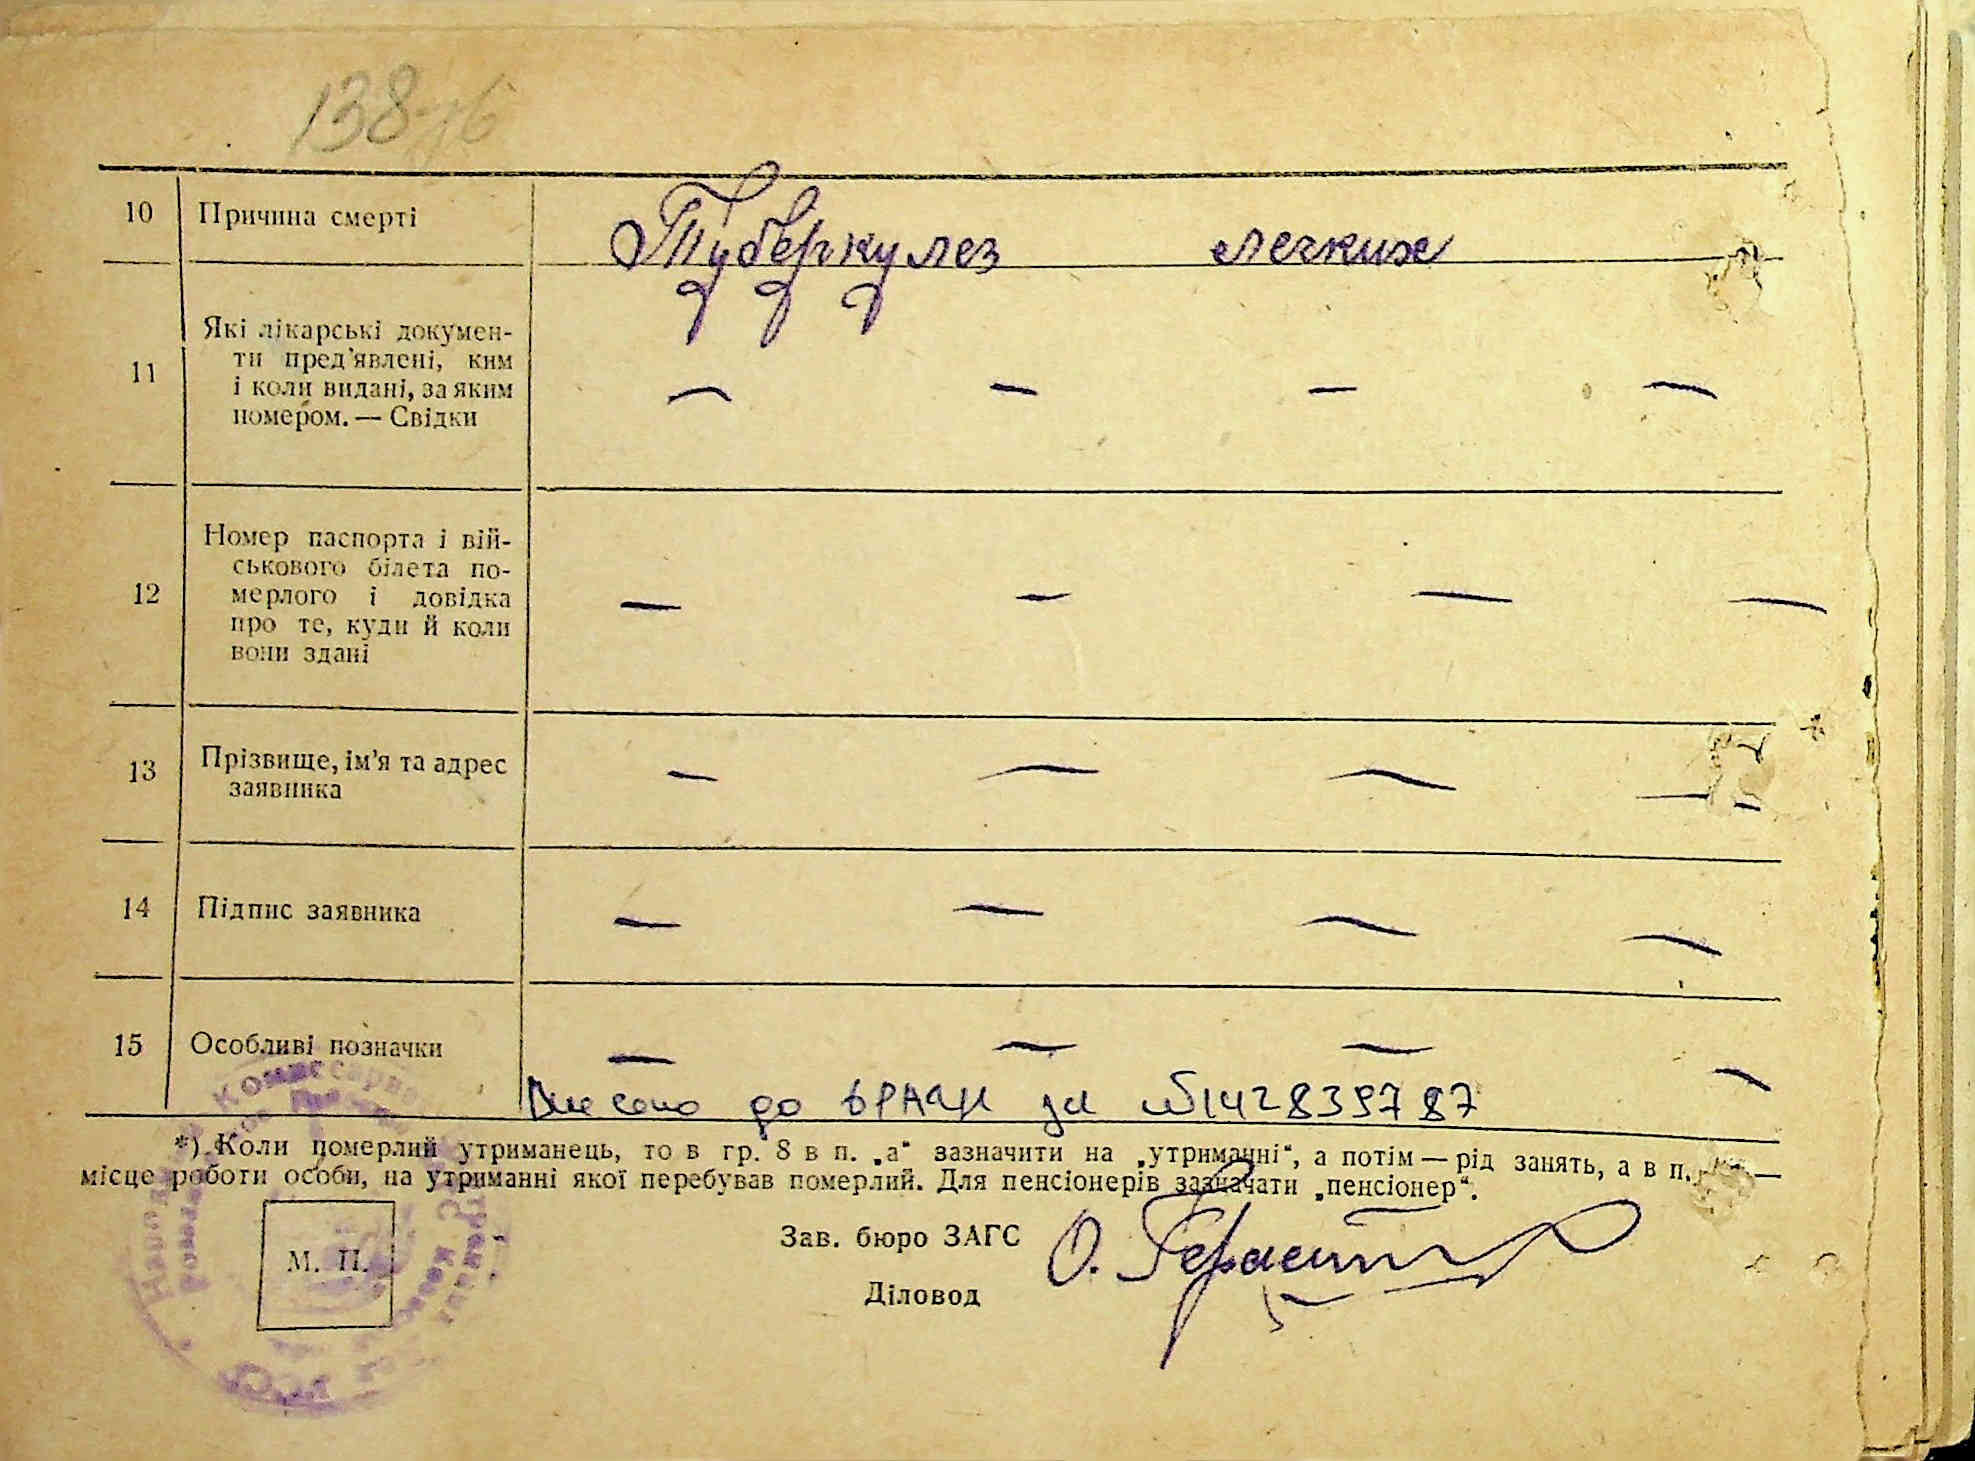 138
10 Причина смерті Туберкулез легких
11 Які лікарські докумен-
ти пред’явлені, ким
і коли видані, за яким
номером. — Свідки — — — —
12 Номер паспорта і вій-
ськового білета по-
мерлого і довідка
про те, куди й коли
вони здані — — — —
13 Прізвище, ім’я та адрес
заявника — — — —
14 Підпис заявника — — — —
15 Особливі позначки — — — —
Внесено до ДРАЦС за №1428397 87
*) Коли померлий утриманець, то в гр. 8 в п. „а“ зазначити на „утриманні“, а потім — рід занять, а в п. —
місце роботи особи, на утриманні якої перебував померлий. Для пенсіонерів зазначати „пенсіонер“.
Зав. бюро ЗАГС О.
Діловод
М. П.